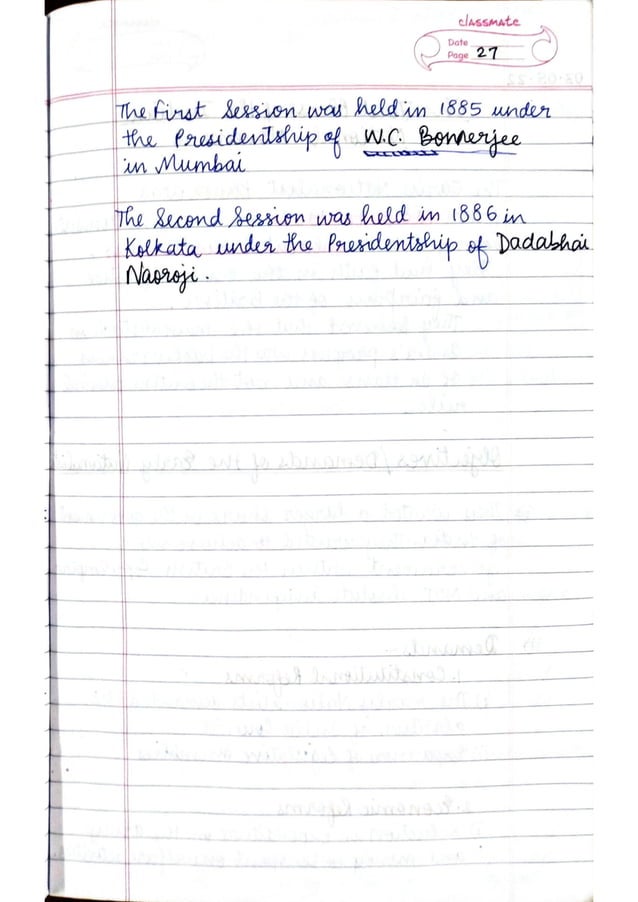 classmate
Date
Page 27
The First Session was held in 1885 under
the Presidentship of W.C. Bonnerjee
in Mumbai
The Second Session was held in 1886 in
Kolkata under the Presidentship of Dadabhai
Naoroji.